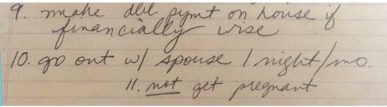 9. make dbl pymt on house if
financially wise
10. go out w/ spouse 1 night/mo.
11. not get pregnant